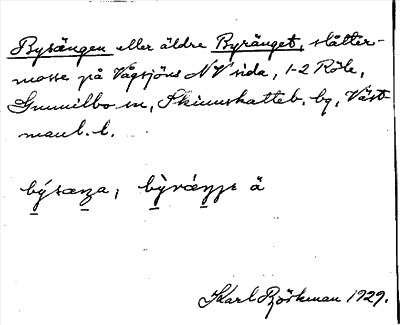 Bysängen eller äldre Byränget, slåtter-
mosse på Vågsjöns NV sida, 1-2 Röle,
Gunnilbo sn, Skinnskatteb. bg, Väst-
manl. l.
Karl Björkman 1929.